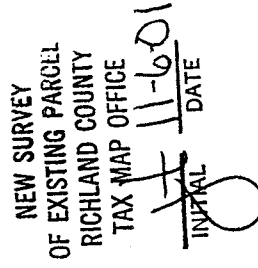 NEW SURVEY
OF EXISTING PARCEL
RICHLAND COUNTY
TAX MAP OFFICE
11-6-01
INITIAL DATE